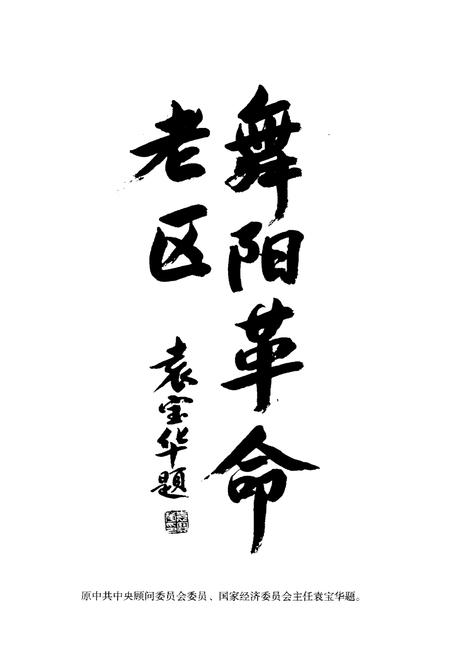 舞阳革命
老区
袁宝华题
原中共中央顾问委员会委员、国家经济委员会主任袁宝华题。